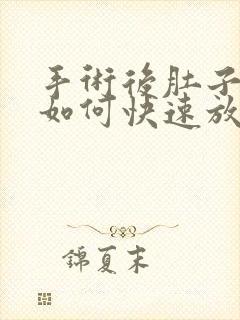 手術後肚子
如何快速放
錦夏末